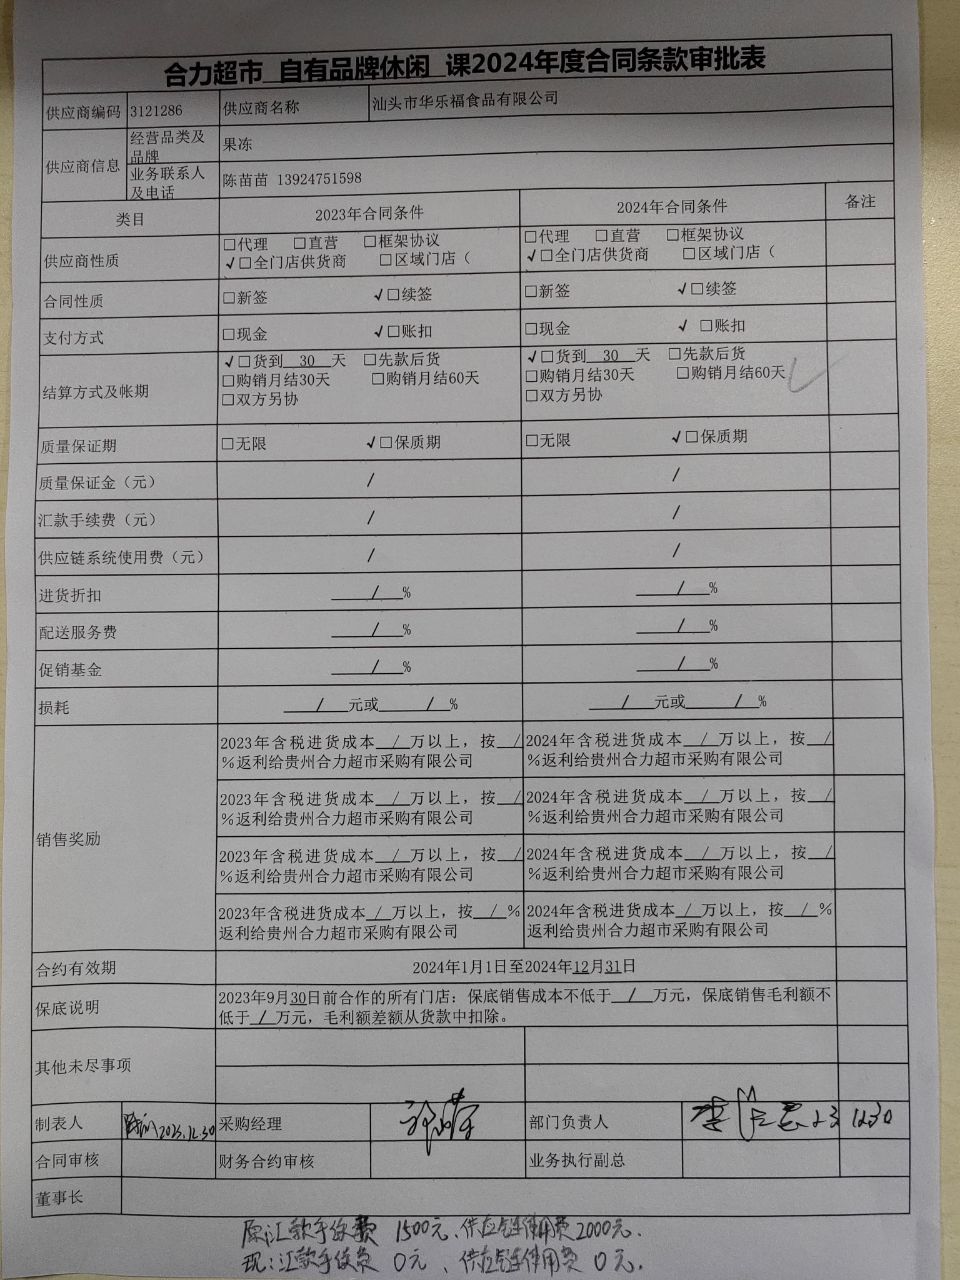 合力超市 自有品牌休闲 课2024年度合同条款审批表
供应商编码 3121286 供应商名称 汕头市华乐福食品有限公司
供应商信息 经营品类及品牌 果冻
业务联系人及电话 陈苗苗 13924751598
类目 2023年合同条件 2024年合同条件 备注
供应商性质 □代理 □直营 □框架协议 □代理 □直营 □框架协议
√□全门店供货商 □区域门店（ √□全门店供货商 □区域门店（
合同性质 □新签 √□续签 □新签 √□续签
支付方式 □现金 √□账扣 □现金 √ □账扣
结算方式及帐期 √□货到 30 天 □先款后货 √□货到 30 天 □先款后货
□购销月结30天 □购销月结60天 □购销月结30天 □购销月结60天
□双方另协 □双方另协
质量保证期 □无限 √□保质期 □无限 √□保质期
质量保证金（元） / /
汇款手续费（元） / /
供应链系统使用费（元） / /
进货折扣 / % / %
配送服务费 / % / %
促销基金 / % / %
损耗 / 元或 / % / 元或 / %
销售奖励 2023年含税进货成本 / 万以上，按 / 2024年含税进货成本 / 万以上，按 /
%返利给贵州合力超市采购有限公司 %返利给贵州合力超市采购有限公司
2023年含税进货成本 / 万以上，按 / 2024年含税进货成本 / 万以上，按 /
%返利给贵州合力超市采购有限公司 %返利给贵州合力超市采购有限公司
2023年含税进货成本 / 万以上，按 / 2024年含税进货成本 / 万以上，按 /
%返利给贵州合力超市采购有限公司 %返利给贵州合力超市采购有限公司
2023年含税进货成本 / 万以上，按 / % 2024年含税进货成本 / 万以上，按 / %
返利给贵州合力超市采购有限公司 返利给贵州合力超市采购有限公司
合约有效期 2024年1月1日至2024年12月31日
保底说明 2023年9月30日前合作的所有门店：保底销售成本不低于 / 万元，保底销售毛利额不
低于 / 万元，毛利额差额从货款中扣除。
其他未尽事项
制表人 2023.12.30 采购经理 部门负责人 23 12.30
合同审核 财务合约审核 业务执行副总
董事长
原：汇款手续费 1500元、供应链使用费2000元.
现：汇款手续费 0元、供应链使用费 0元.